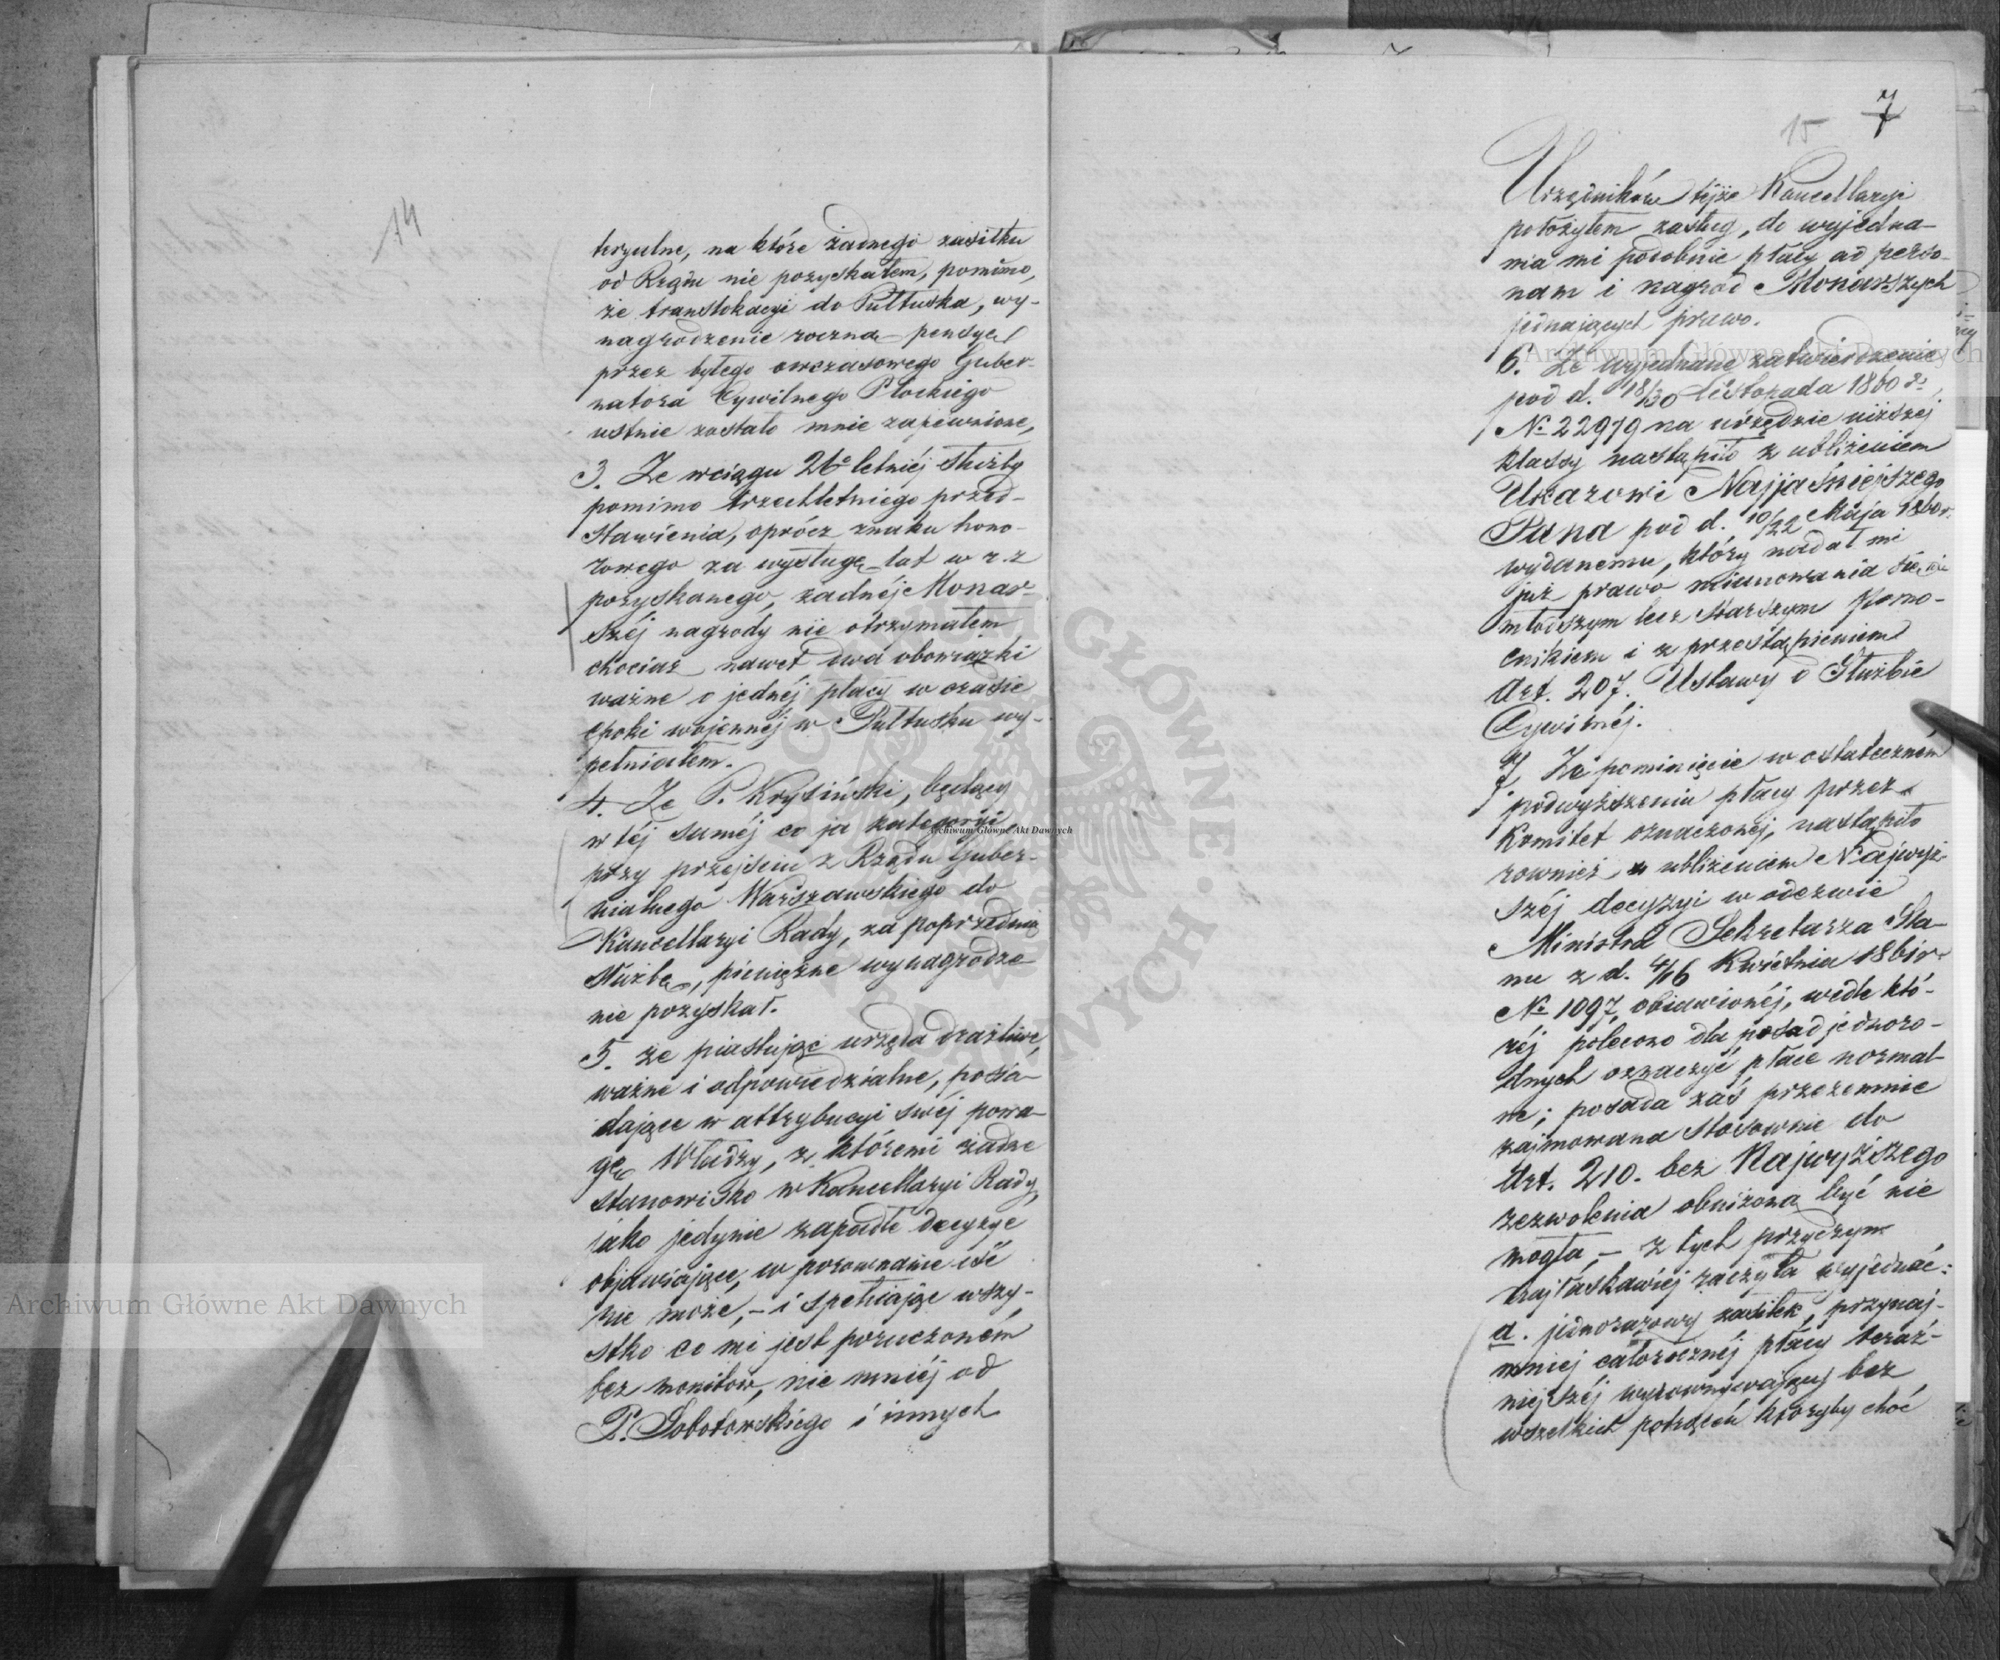 14
teryalne, na które żadnego zasiłku
od Rządu nie pozyskałem, pomimo,
że translokacyi do Pułtuska, wy-
nagrodzenie roczną pensyą
przez byłego owczasowego Guber-
natora Cywilnego Płockiego
ustnie zostało mnie zapewnione,
3. Że wciągu 26° letniéj służby
pomimo trzechletniego przed-
stawienia, oprócz znaku hono-
rowego za wysługę lat w r. z
pozyskanego, żadnéj Monar-
széj nagrody nie otrzymałem
chociaż nawet dwa obowiązki
ważne o jednéj płacy w czasie
epoki wojennéj w Pułtusku wy-
pełniałem.
4. Że P. Krysiński, będący
w téj saméj co ja kategoryi
przy przejściu z Rządu Guber-
nialnego Warszawskiego do
Kancellaryi Rady, za poprzednią
służbę, pieniężne wynagrodze
nie pozyskał.
5. że piastując urzęda drażliwe,
ważne i odpowiedzialne, posia-
dające w attrybucyi swéj powa-
gę Władzy, z któremi żadne
stanowisko w Kancellaryi Rady,
jako jedynie zapadłe decyzye
objawiające, w porownanie iść
nie może, – i spełniając wszy-
stko co mi jest poruczoném
bez monitów, nie mniéj od
P. Sobotowskiego i innych
15 7
Urzędników téjże Kancellaryi
położyłem zasług, do wyjedna-
nia mi podobnie płacy ad perso-
nam i nagród Monarszych
jednających prawo.
6. Że wyjednane zatwierdzenie
pod d. 18/30 Listopada 1860 r.
№ 22979 na urzędzie niższéj
klassy nastąpiło z ubliżeniem
Ukazowi Najjaśniejszego
Pana pod d. 10/22 Maja 1860 r.
wydanemu, który nadał mi
już prawo mianowania się nie
młodszym lecz starszym Pomo-
cnikiem i z przestąpieniem
Art. 207. Ustawy o Służbie
Cywilnéj.
7. Że pominięcie w ostateczném
podwyższeniu płacy przez
Komitet oznaczonéj, nastąpiło
rownież z ubliżeniem Najwyż-
széj decyzyi w odezwie
Ministra Sekretarza Sta-
nu z d. 4/16 Kwietnia 1861 r.
№ 1097, objawionéj, wedle któ-
réj polecono dla posad jednoro-
dnych oznaczyć płace normal-
ne; posada zaś przezemnie
zajmowana stosownie do
Art. 210. bez Najwyższego
zezwolenia obniżoną być nie
mogła, – z tych przyczyn
najłaskawiéj raczyła wyjednać:
a. jednorazowy zasiłek, przynaj-
mniej całorocznéj płacy teraź-
niejszéj wyrownywający bez
wszelkich potrąceń któryby choć
Archiwum Główne Akt Dawnych
Archiwum Główne Akt Dawnych
Archiwum Główne Akt Dawnych